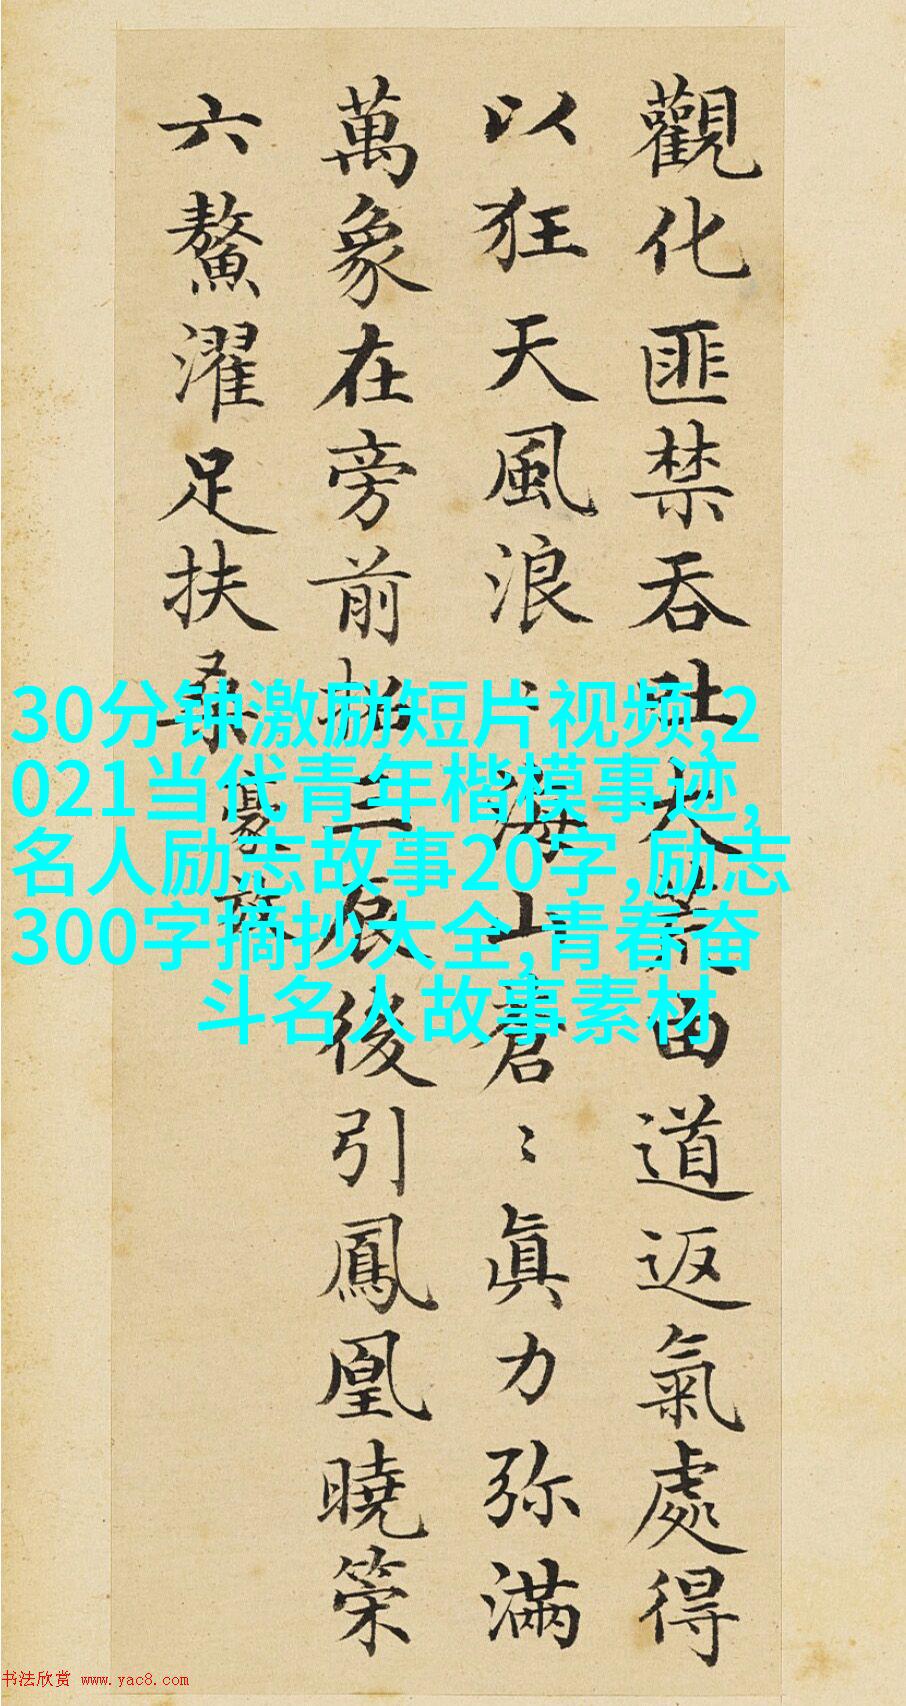 觀化匪禁吞吐大荒由道返氣處得
以狂天風浪〻海山蒼〻真力弥滿
萬象在旁前招三辰後引鳳凰曉策
六鰲濯足扶桑
豪放
30分钟激励短片视频,2
021当代青年楷模事迹,
名人励志故事20字,励志
300字摘抄大全,青春奋
斗名人故事素材
书法欣赏 www.yac8.com